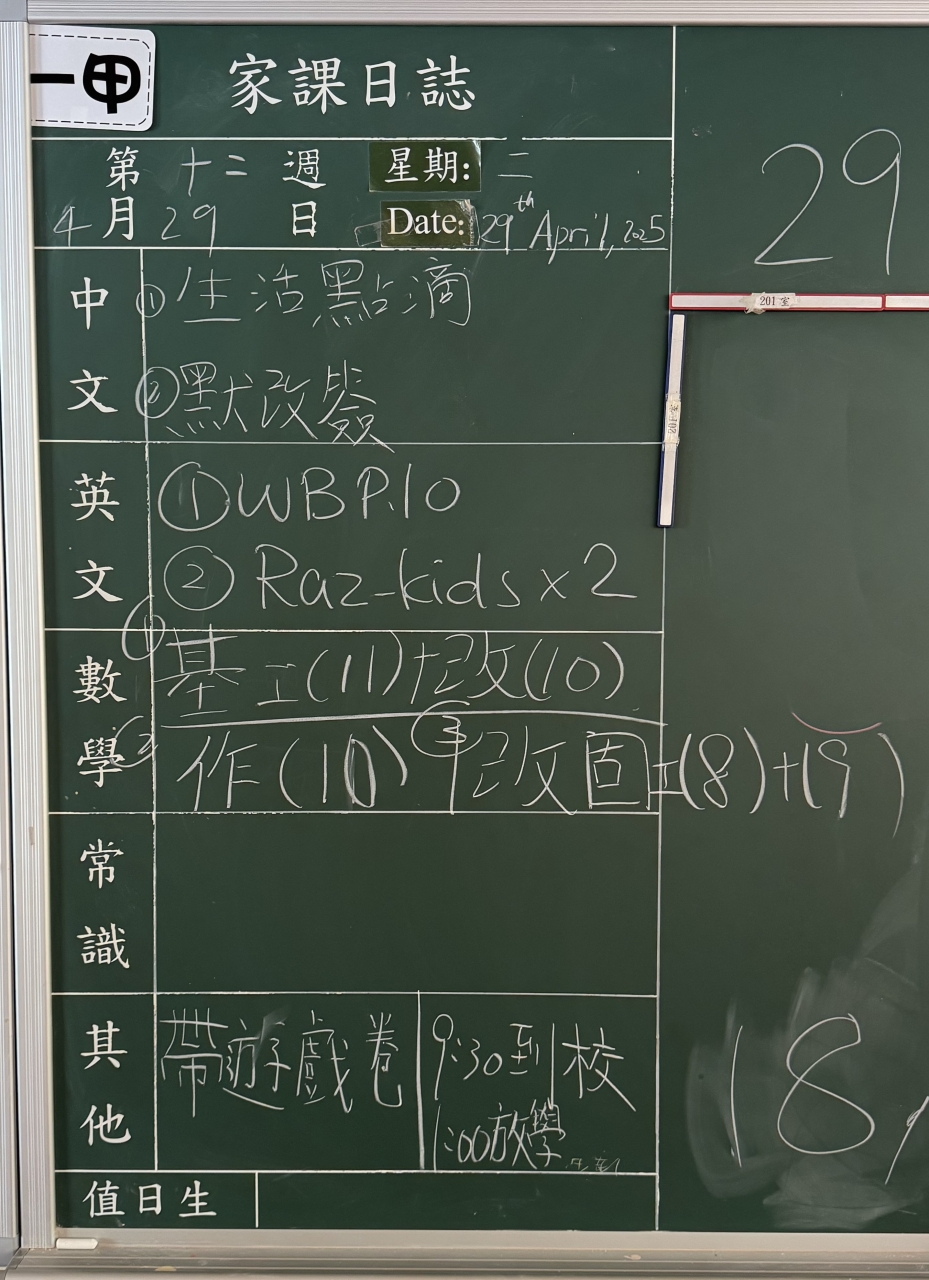 一甲
家課日誌
第 十二 週 星期: 二
4 月 29 日 Date: 29th April, 2025
29
201室
中文
① 生活點滴
② 默改簽
英文
① WB P.10
② Raz-kids x 2
數學
① 基工(11)+改(10)
② 作(10) ③ 改固工(8)+(9)
常識
其他
帶遊戲卷
9:30到校
1:00放學
18
值日生